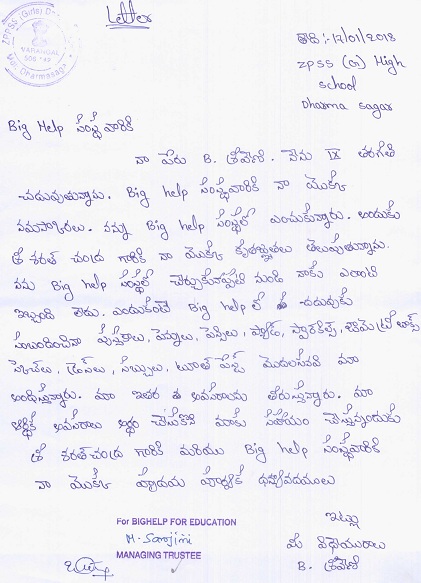 Letter
ZPPSS (Girls) D
WARANGAL
Dharmasagar
తేది:-12/01/2018
ZPSS (G) High
school
Dharma sagar
Big Help సంస్థవారికి
నా పేరు B. శ్రీవేణి. నేను IX తరగతి
చదువుతున్నాను. Big help సంస్థవారికి నా యొక్క
నమస్కారాలు. నన్ను Big help సంస్థలో ఎంచుకున్నారు. అందుకు
శ్రీ శరత్ చంద్ర గారికి నా యొక్క కృతజ్ఞతలు తెలుపుతున్నాను.
నను Big help సంస్థలో చేర్చుకున్నప్పటి నుండి నాకు ఎలాంటి
ఇబ్బంది లేదు. ఎందుకంటే Big help లో చదువుకు
సంబంధించిన పుస్తకాలు, పెన్నులు, పెన్సిల్, ప్యాడ్, జామెట్రీ బాక్స్
స్కెచ్‌లు, డ్రెస్‌లు, సబ్బులు, టూత్ పేస్ట్ మొదలైనవి మాకు
అందిస్తున్నారు. మా ఇతర అవసరాలను తీరుస్తున్నారు. మా
ఆర్థిక అవసరాలు అర్థం చేసుకొని మాకు సహాయం చేస్తున్నందుకు
శ్రీ శరత్‌చంద్ర గారికి మరియు Big help సంస్థవారికి
నా యొక్క హృదయ పూర్వక ధన్యవాదములు
ఇట్లు
For BIGHELP FOR EDUCATION
M. Sarojini
మీ విధేయురాలు
MANAGING TRUSTEE
B. శ్రీవేణి